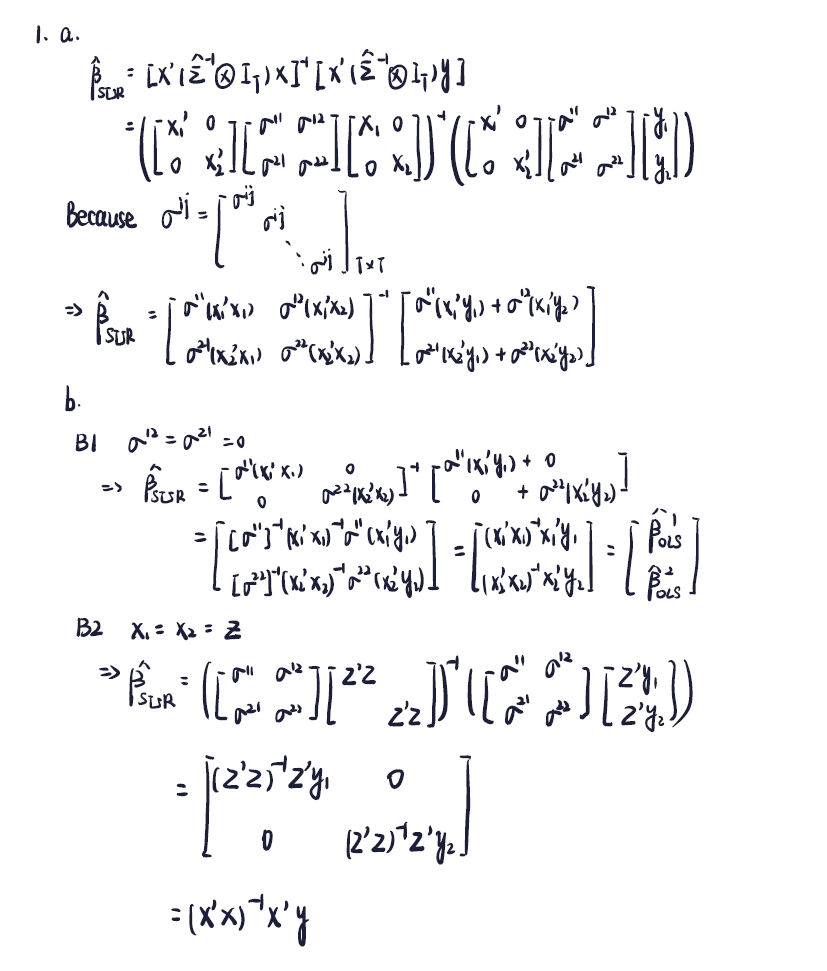 1. a.
β̂_SUR = [X'(Σ̂⁻¹⊗I_T)X]⁻¹[X'(Σ̂⁻¹⊗I_T)y]
= ([x₁' 0; 0 x₂'][σ¹¹ σ¹²; σ²¹ σ²²][x₁ 0; 0 x₂])⁻¹([x₁' 0; 0 x₂'][σ¹¹ σ¹²; σ²¹ σ²²][y₁; y₂])
Because σ^ij = [σ^ij σ^ij ⋱ σ^ij]_T×T
⇒ β̂_SUR = [σ¹¹(x₁'x₁) σ¹²(x₁'x₂); σ²¹(x₂'x₁) σ²²(x₂'x₂)]⁻¹ [σ¹¹(x₁'y₁) + σ¹²(x₁'y₂); σ²¹(x₂'y₁) + σ²²(x₂'y₂)]
b.
B1 σ¹² = σ²¹ = 0
⇒ β̂_SUR = [σ¹¹(x₁'x₁) 0; 0 σ²²(x₂'x₂)]⁻¹ [σ¹¹(x₁'y₁) + 0; 0 + σ²²(x₂'y₂)]
= [[σ¹¹]⁻¹(x₁'x₁)⁻¹σ¹¹(x₁'y₁); [σ²²]⁻¹(x₂'x₂)⁻¹σ²²(x₂'y₂)] = [(x₁'x₁)⁻¹x₁'y₁; (x₂'x₂)⁻¹x₂'y₂] = [β̂¹_OLS; β̂²_OLS]
B2 x₁ = x₂ = Z
⇒ β̂_SUR = ([σ¹¹ σ¹²; σ²¹ σ²²][Z'Z ; Z'Z])⁻¹([σ¹¹ σ¹²; σ²¹ σ²²][Z'y₁; Z'y₂])
= [(Z'Z)⁻¹Z'y₁ 0; 0 (Z'Z)⁻¹Z'y₂]
= (X'X)⁻¹X'y